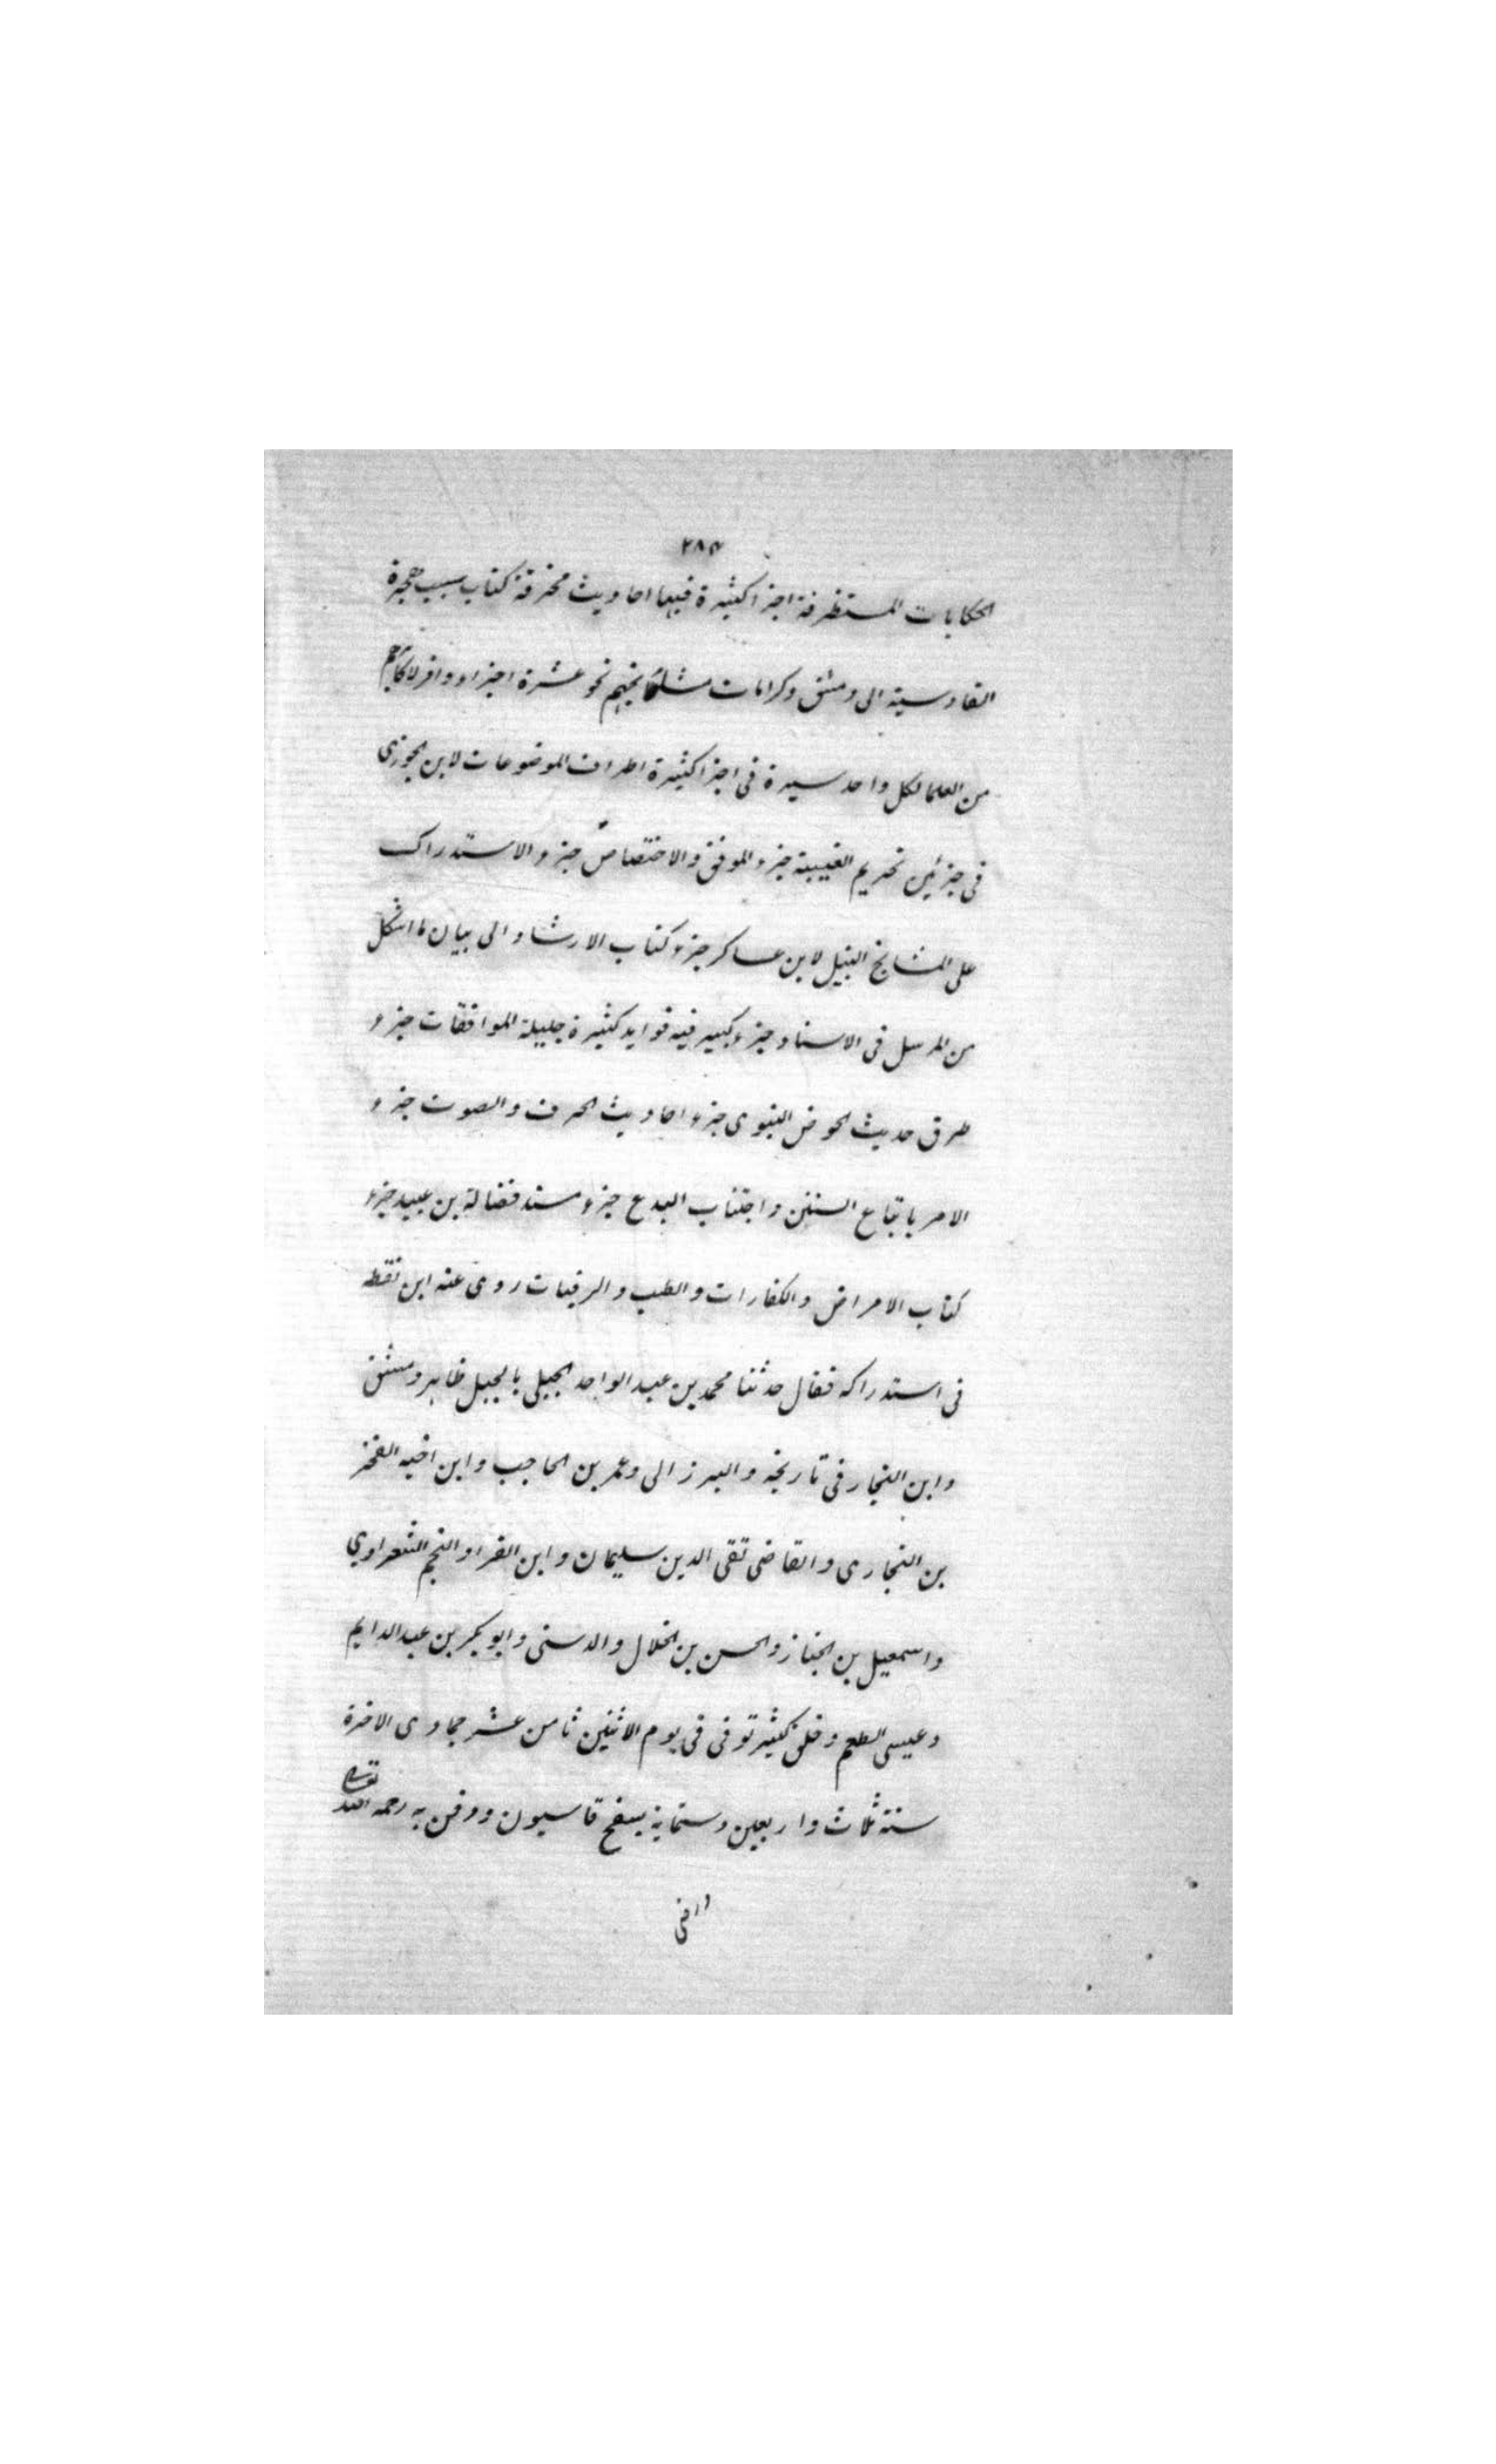 ٢٨٣
الحكايات المستظرفة اجزا كثيرة فيها احاديث مخرقة كتاب سبب هجرة
القادسية الى دمشق وكرامات مشائخهم نحو عشرة اجزاء وافرلاكابرهم
من العلما لكل واحد سيرة فى اجزا كثيرة اطراف الموضوعات لابن الجوزى
فى جزئين تحريم الغيبة جزء الموفق والاختصاص جزء والاستدراك
على المشايخ النبيل لابن عساكر جزء كتاب الارشاد الى بيان ما اشكل
من المرسل فى الاسناد جزء كبير فيه فوايد كثيرة جليلة الموافقات جزء
طرق حديث الحوض النبوى جزء احاديث الحرف والصوت جزء
الامر باتباع السنن واجتناب البدع جزء مسند فضالة بن عبيد جزء
كتاب الامراض والكفارات والطب والرقيات روى عنه ابن نقطه
فى استدراكه فقال حدثنا محمد بن عبد الواحد الجبلى بالجبل ظاهر دمشق
وابن النجار فى تاريخه والبرزالى وعمر بن الحاجب وابن اخيه الفخر
بن النجارى والقاضى تقى الدين سليمان وابن الفرا والنجم الشعراوي
واسمعيل بن الخباز والحسن بن الخلال والدشتى وابو بكر بن عبد الدايم
وعيسى المطعم وخلق كثير توفى فى يوم الاثنين ثامن عشر جمادى الاخرة
سنة ثلاث واربعين وستماية بسفح قاسيون ودفن به رحمه الله